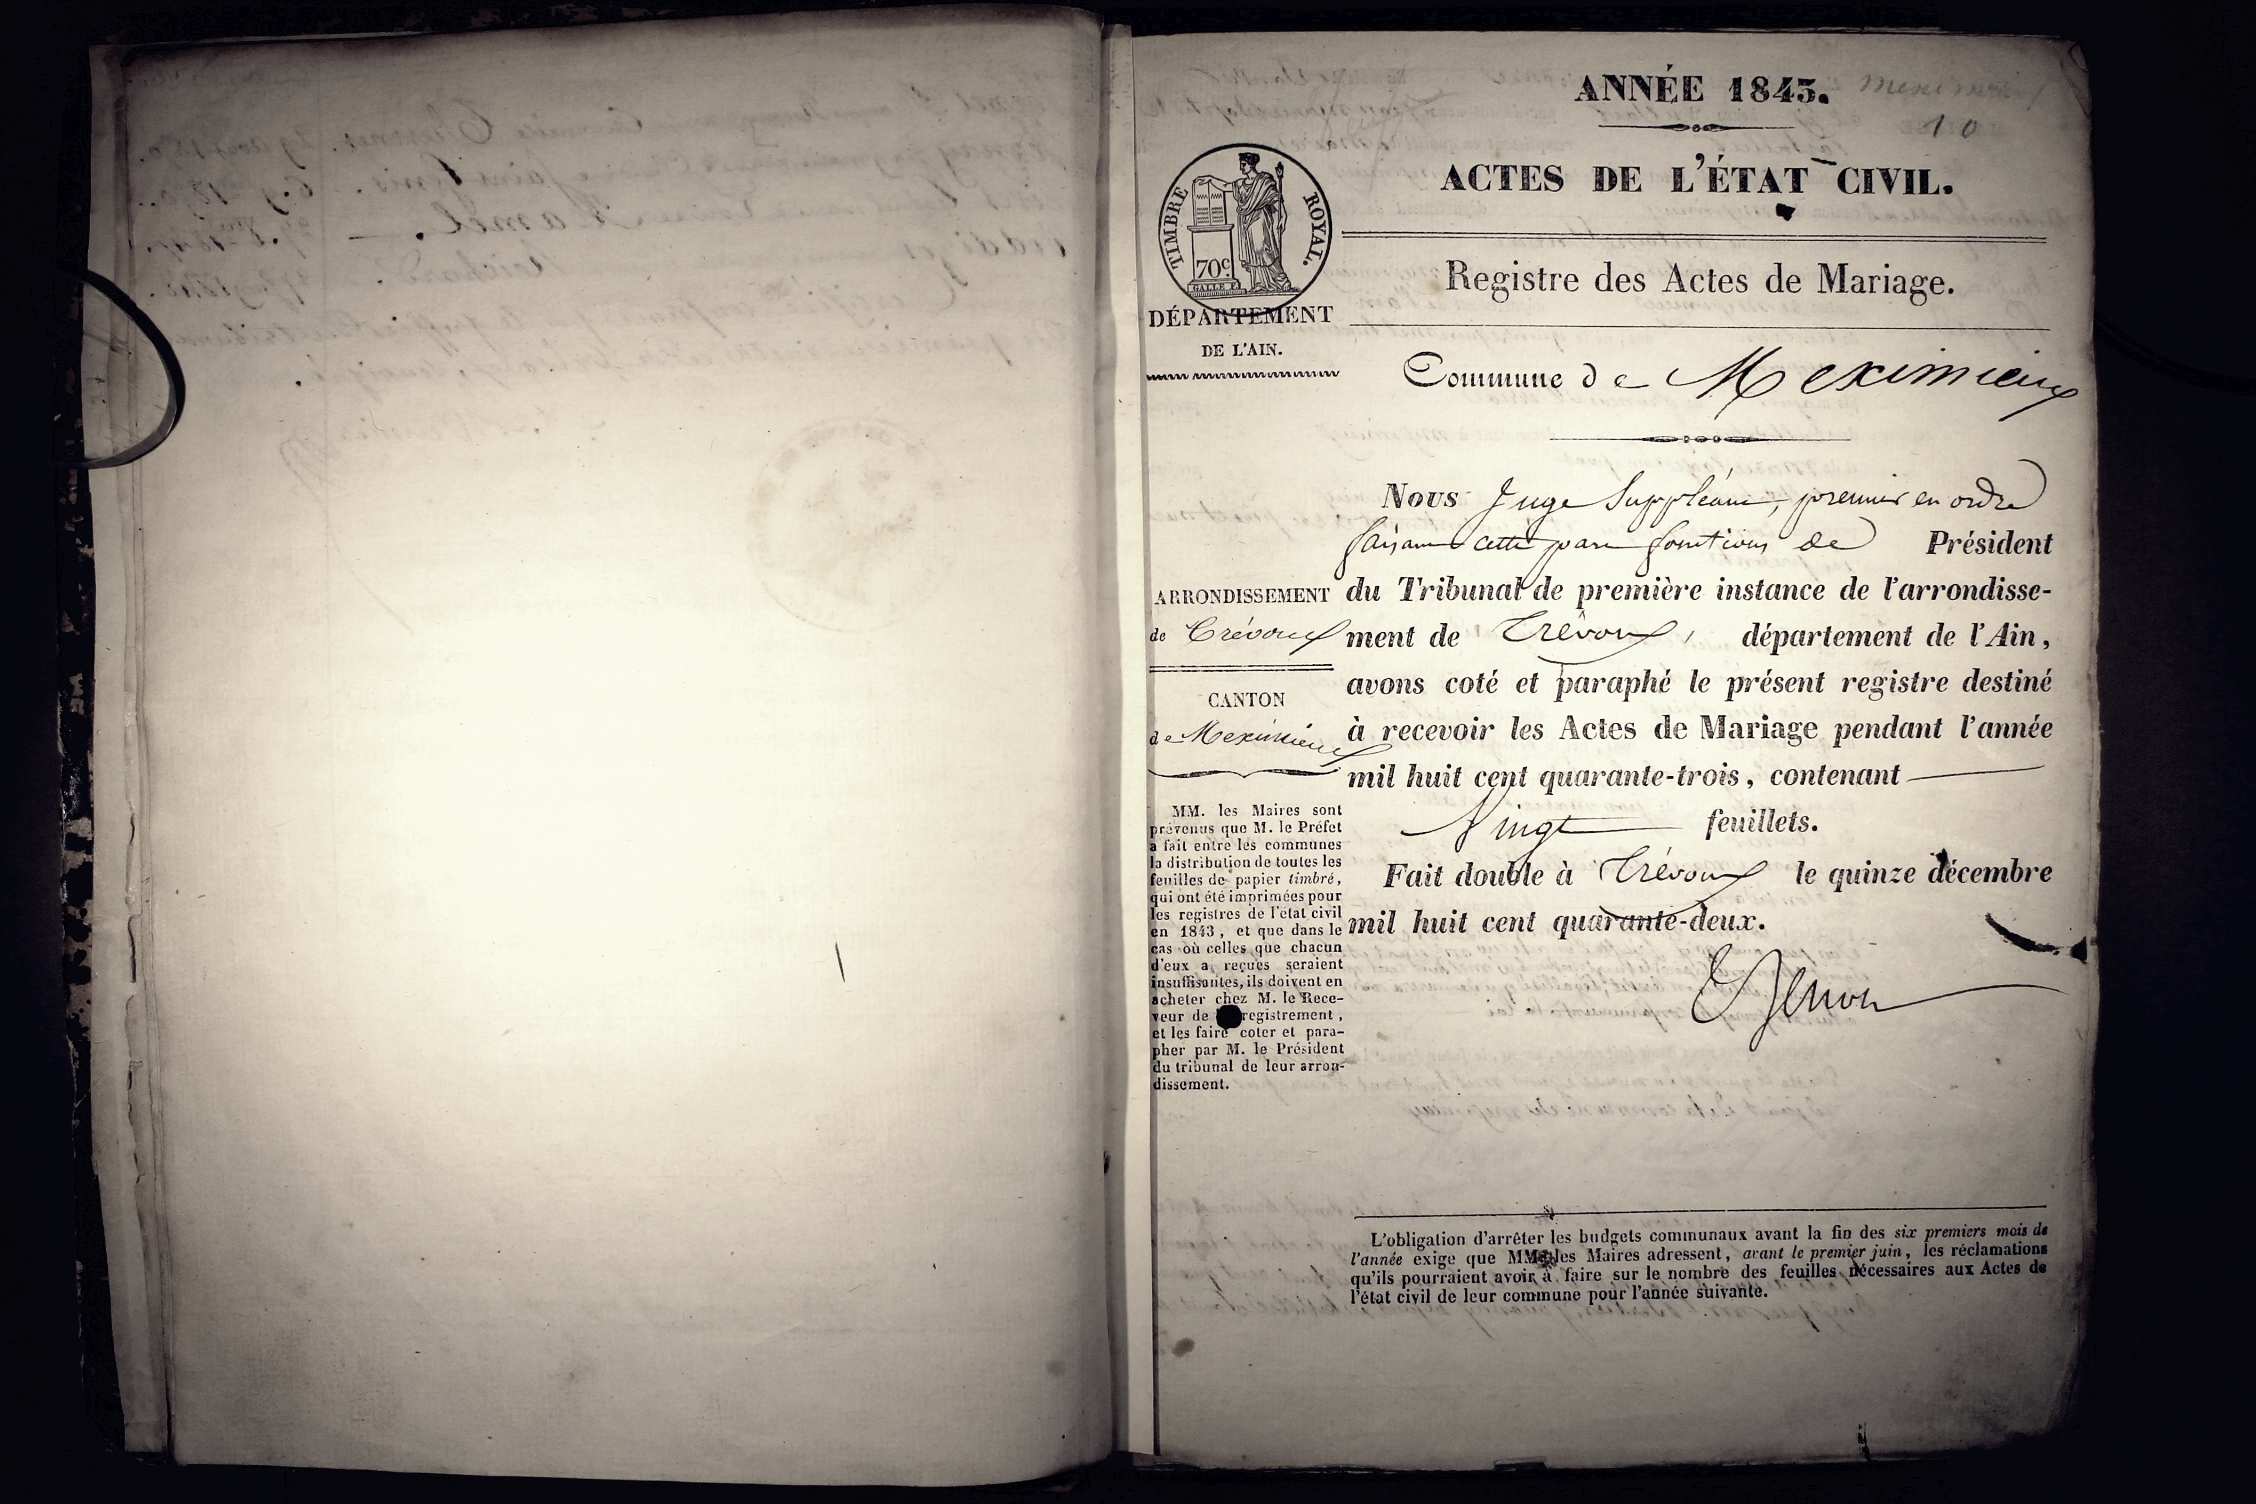 ANNÉE 1843.
10
ACTES DE L'ÉTAT CIVIL.
TIMBRE ROYAL.
70c.
Registre des Actes de Mariage.
DÉPARTEMENT
DE L'AIN.
Commune de Meximieux
Nous Juge Suppléant, premier en ordre
faisant cette part fonctions de Président
ARRONDISSEMENT
de Trévoux
du Tribunal de première instance de l'arrondisse-
ment de Trévoux, département de l'Ain,
avons coté et paraphé le présent registre destiné
à recevoir les Actes de Mariage pendant l'année
mil huit cent quarante-trois, contenant
Vingt feuillets.
Fait double à Trévoux le quinze décembre
mil huit cent quarante-deux.
CANTON
de Meximieux
MM. les Maires sont
prévenus que M. le Préfet
a fait entre les communes
la distribution de toutes les
feuilles de papier timbré,
qui ont été imprimées pour
les registres de l'état civil
en 1843, et que dans le
cas où celles que chacun
d'eux a reçues seraient
insuffisantes, ils doivent en
acheter chez M. le Rece-
veur de registrement,
et les faire coter et para-
pher par M. le Président
du tribunal de leur arron-
dissement.
L'obligation d'arrêter les budgets communaux avant la fin des six premiers mois de
l'année exige que MM. les Maires adressent, avant le premier juin, les réclamations
qu'ils pourraient avoir à faire sur le nombre des feuilles nécessaires aux Actes de
l'état civil de leur commune pour l'année suivante.